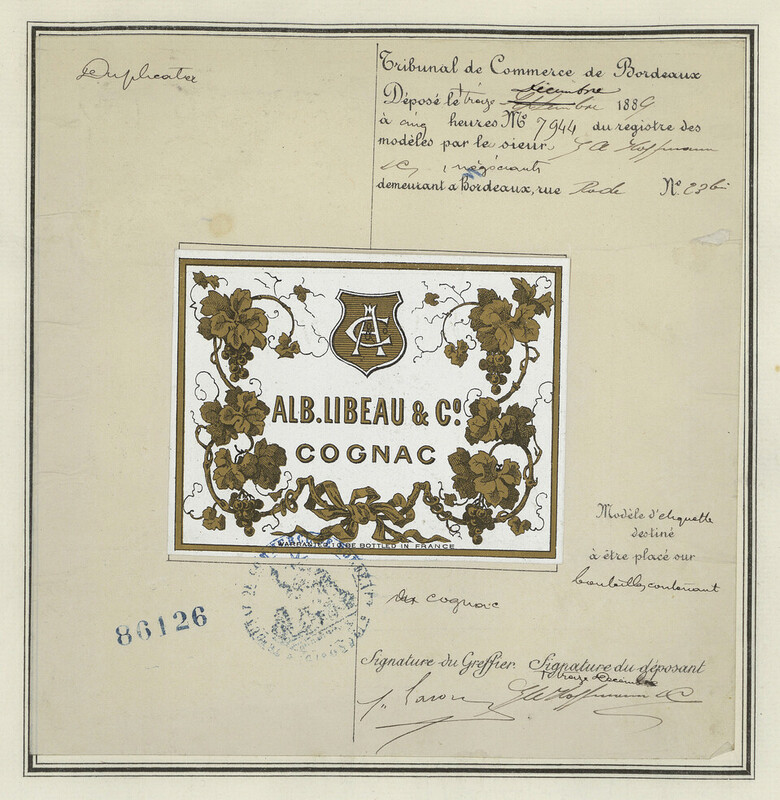 Duplicata
Tribunal de Commerce de Bordeaux
Déposé le treize décembre 1889
à cinq heures № 7944 du registre des
modèles par le sieur Hoffmann
& Cie, négociants
demeurant à Bordeaux, rue Rode N° 23 bis
ALB. LIBEAU & C°
COGNAC
WARRANTED TO BE BOTTLED IN FRANCE
Modèle d'étiquette
destiné
à être placé sur
bouteilles contenant
du cognac
86126
TRIBUNAL DE COMMERCE
Signature du Greffier. Signature du déposant
treize Décembre
Hoffmann & C